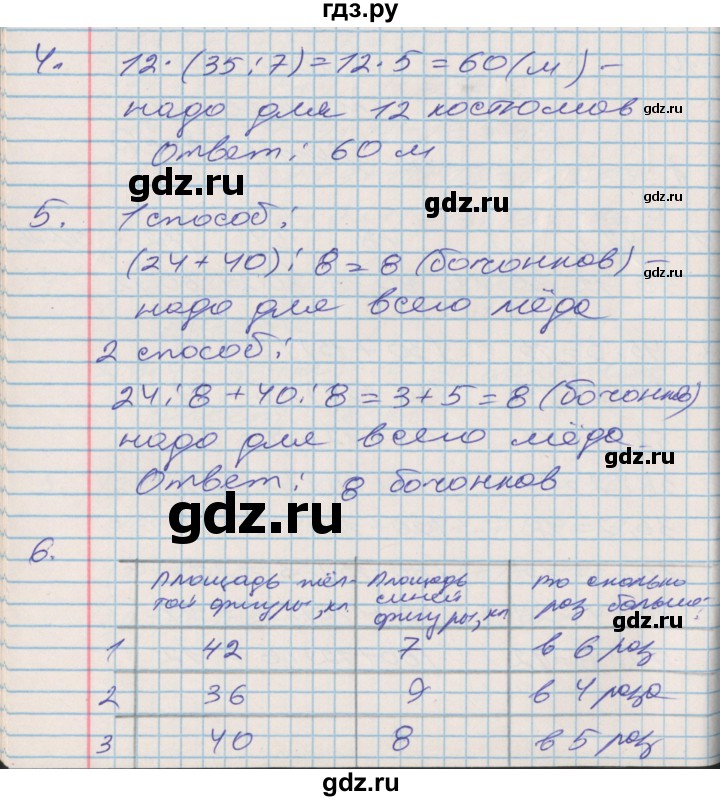 гдз.ру
4. 12·(35:7)=12·5=60(м)-
надо для 12 костюмов
gdz.ru
Ответ: 60 м
gdz.ru
gdz.ru
5. 1 способ:
(24+40):8=8 (бочонков)-
gdz.ru
надо для всего мёда
2 способ:
24:8+40:8=3+5=8 (бочонков)
gdz.ru
надо для всего мёда
gdz.ru
Ответ: 8 бочонков
gdz.ru
6.
Площадь жёл- Площадь во сколько
той фигуры, кл синей раз больше?
фигуры, кл gdz.ru
1 42 7 в 6 раз
2 36 9 в 4 раза
3 40 8 в 5 раз
gdz.ru
gdz.ru